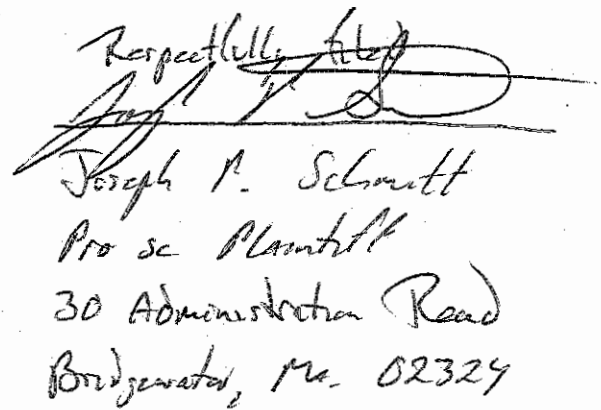 Respectfully filed
Joseph P. Schmitt
Pro se Plaintiff
30 Administration Road
Bridgewater, Ma. 02324